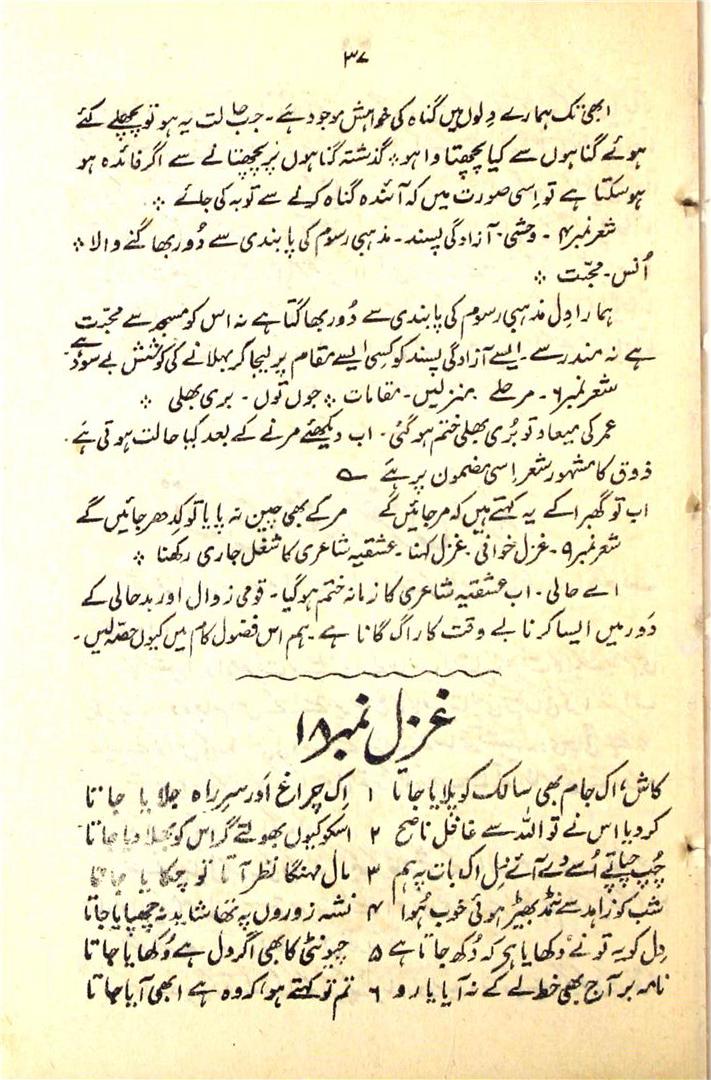 ۳۷
ابھی تک ہمارے دلوں میں گناہ کی خواہش موجود ہے۔ جب حالت یہ ہو تو پچھلے کئے
ہوئے گناہوں سے کیا پچھتاوا ہو ؞ گذشتہ گناہوں پر پچھتانے سے اگر فائدہ ہو
ہو سکتا ہے تو اِسی صورت میں کہ آئندہ گناہ کرنے سے توبہ کی جائے ؞
شعر نمبر ۴۔ وحشی۔ آزادگی پسند۔ مذہبی رسوم کی پابندی سے دُور بھاگنے والا ؞
اُنس۔ محبّت ؞
ہمارا دِل مذہبی رسوم کی پابندی سے دُور بھاگتا ہے نہ اس کو مسجد سے محبّت
ہے نہ مندر سے۔ ایسے آزادگی پسند کو کسی ایسے مقام پر لیجا کر بہلانے کی کوشش بے سود ہے۔
شعر نمبر ۶۔ مرحلے۔ منزلیں۔ مقامات ؞ جوں توں۔ بری بھلی ؞
عمر کی میعاد تو بُری بھلی ختم ہو گئی۔ اب دیکھئے مرنے کے بعد کیا حالت ہوتی ہے۔
ذوق کا مشہور شعر اِسی مضمون پر ہے ؎
اب تو گھبرا کے یہ کہتے ہیں کہ مر جائیں گے مر کے بھی چین نہ پایا تو کِدھر جائیں گے
شعر نمبر ۹۔ غزل خوانی۔ غزل کہنا۔ عشقیہ شاعری کا شغل جاری رکھنا ؞
اے حالی۔ اب عشقیہ شاعری کا زمانہ ختم ہو گیا۔ قومی زوال اور بدحالی کے
دَور میں ایسا کرنا بے وقت کا راگ گانا ہے۔ ہم اس فضول کام میں کیوں حصّہ لیں۔
غزل نمبر ۱۸
کاش، اک جام بھی سالک کو پلایا جاتا ۱ اِک چراغ اَور سرِ راہ جلایا جاتا
کر دیا اس نے تو اللہ سے غافل ناصح ۲ اسکو کیوں بھولتے گر اس کو بھلا دیا جاتا
چُپ چپاتے اُسے دے آئے دل اک بات پہ ہم ۳ مال مہنگا نظر آتا تو چکایا جاتا
شب کو زاہد سے نہ مُڈ بھیڑ ہوئی خوب ہُوا ۴ نشہ زوروں پہ تھا شاید نہ چھپایا جاتا
دِل کو یہ تو نے دکھایا ہے کہ دُکھ جاتا ہے ۵ چیونٹی کا بھی اگر دل ہے دُکھایا جاتا
نامہ بر آج بھی خط لے کے نہ آیا یارو ۶ تم تو کہتے ہو، کہ وہ ہے ابھی آیا جاتا